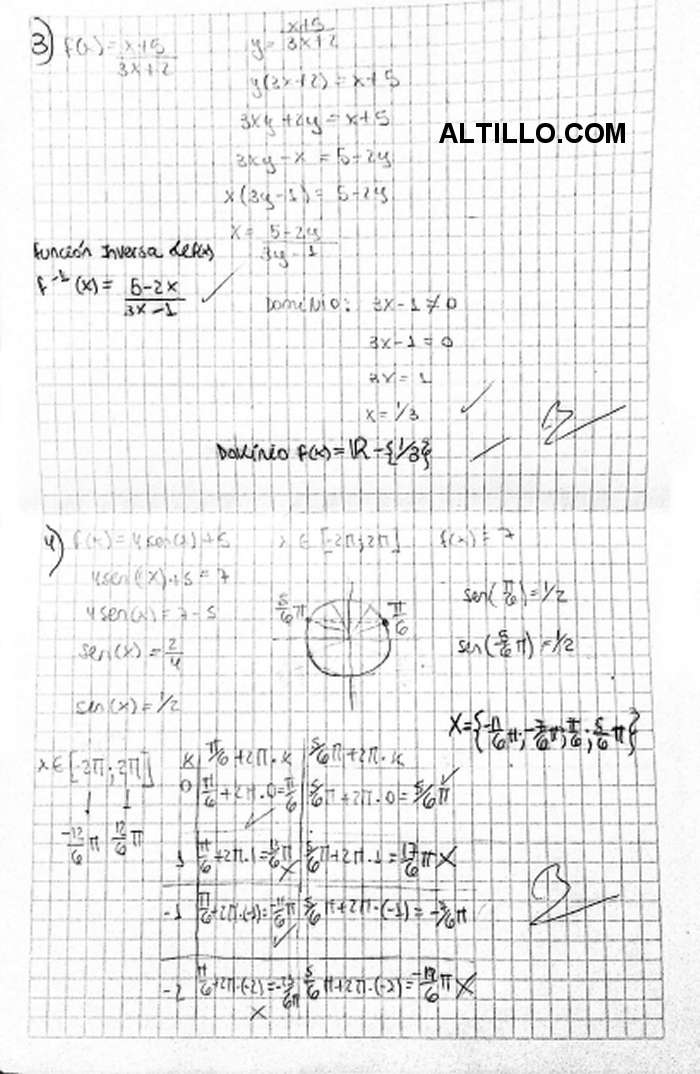 3) f(x) = x+5 / 3x+2
y = x+5 / 3x+2
y(3x+2) = x+5
3xy + 2y = x+5
ALTILLO.COM
3xy - x = 5-2y
x(3y-1) = 5-2y
x = 5-2y / 3y-1
Función Inversa de f(x)
f⁻¹(x) = 5-2x / 3x-1 ✓
Dominio: 3x-1 ≠ 0
3x-1 = 0
3x = 1
x = 1/3 ✓
Dominio f(x) = ℝ - {1/3}
4) f(x) = 4sen(x)+5 x ∈ [-2π; 2π] f(x) = 7
4sen(x)+5 = 7
4sen(x) = 7-5
sen(x) = 2/4
sen(x) = 1/2
5/6 π π/6
sen(π/6) = 1/2
sen(5/6 π) = 1/2
X = {-11/6 π; -7/6 π; π/6; 5/6 π}
x ∈ [-2π; 2π]
-12/6 π 12/6 π
K π/6 + 2π·K 5/6 π + 2π·K
0 π/6 + 2π·0 = π/6 ✓ 5/6 π + 2π·0 = 5/6 π ✓
1 π/6 + 2π·1 = 13/6 π X 5/6 π + 2π·1 = 17/6 π X
-1 π/6 + 2π·(-1) = -11/6 π ✓ 5/6 π + 2π·(-1) = -7/6 π
-2 π/6 + 2π·(-2) = -23/6 π X 5/6 π + 2π·(-2) = -19/6 π X